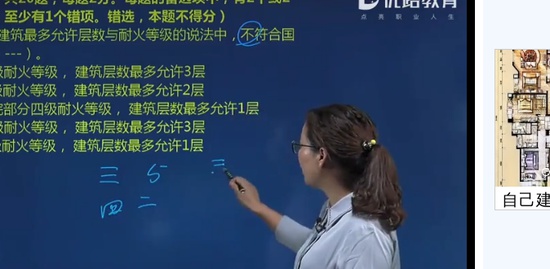 共20题，每题2分。每题的备选项中，有2个或2
至少有1个错项。错选，本题不得分）
优路教育
点亮职业人生
建筑最多允许层数与耐火等级的说法中，不符合国
---）。
级耐火等级，建筑层数最多允许3层
级耐火等级，建筑层数最多允许2层
院部分四级耐火等级，建筑层数最多允许1层
级耐火等级，建筑层数最多允许3层
级耐火等级，建筑层数最多允许1层
三 5 三
四 二
自己建